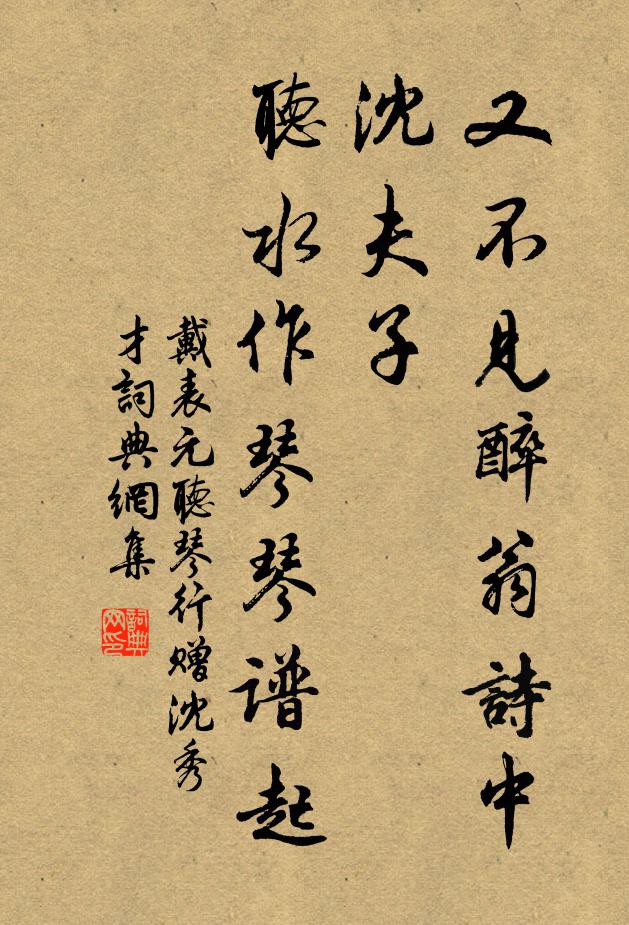 又不見醉翁詩中
沈夫子
聽水作琴琴譜起
戴表元聽琴行贈沈秀
才詞典網集
詞典
网印